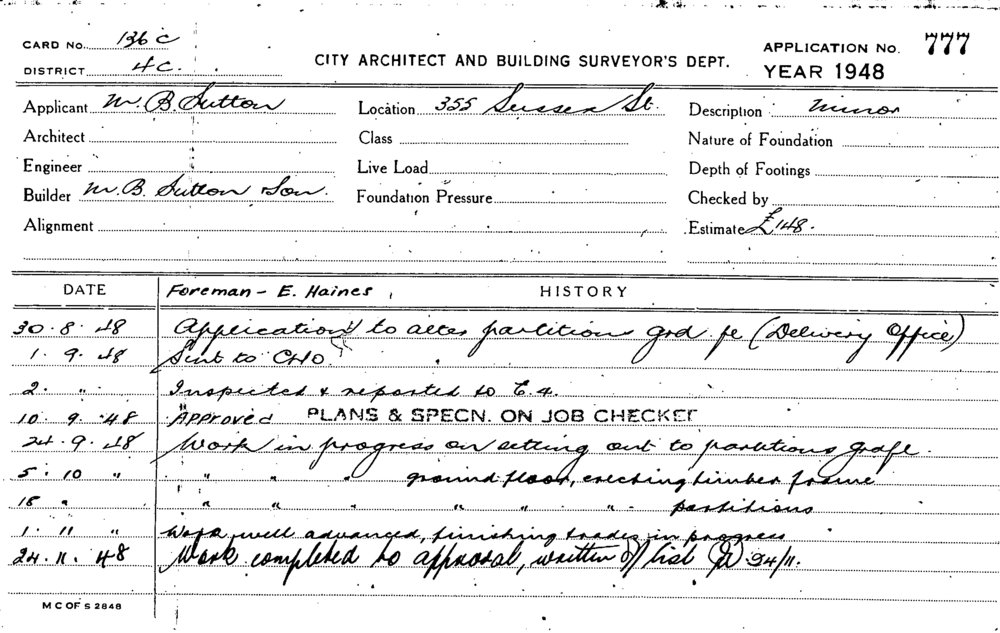 CARD No. 136 C
DISTRICT 4 C.
CITY ARCHITECT AND BUILDING SURVEYOR'S DEPT.
APPLICATION No. 777
YEAR 1948
Applicant M. B. Sutton
Location 355 Sussex St.
Description Minor
Architect
Class
Nature of Foundation
Engineer
Live Load
Depth of Footings
Builder M. B. Sutton & Son.
Foundation Pressure
Checked by
Alignment
Estimate £148.
DATE
Foreman - E. Haines,
HISTORY
30.8.48 Application to alter partitions grd. fl (Delivery Office)
1.9.48 Sent to CHO
2. " Inspected & reported to C.A.
10.9.48 Approved PLANS & SPECN. ON JOB CHECKED
24.9.48 Work in progress on setting out to partitions
5.10 " " " " ground floor, erecting timber frame
18 " " " " " " " partitions
1.11 " Work well advanced, finishing trades in progress
24.11.48 Work completed to approval, written off list 24/11.
M C OF S 2848